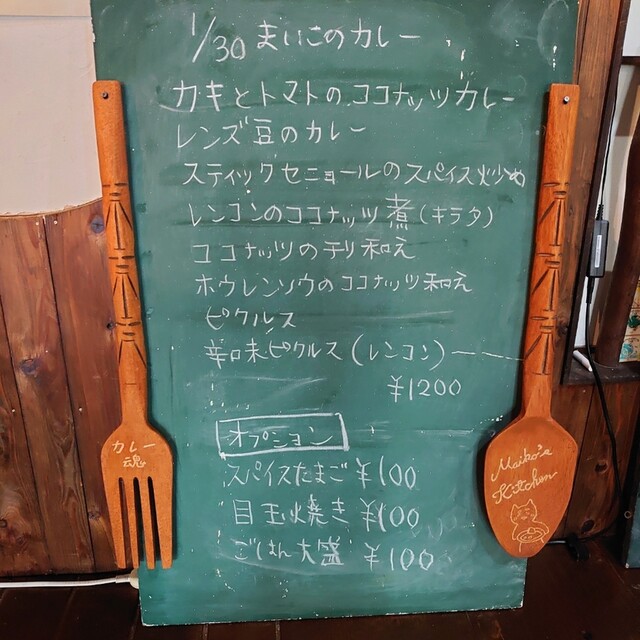 1/30 まいこのカレー
カキとトマトのココナッツカレー
レンズ豆のカレー
スティックセニョールのスパイス炒め
レンコンのココナッツ煮(キラタ)
ココナッツのチリ和え
ホウレンソウのココナッツ和え
ピクルス
辛口味ピクルス(レンコン)
¥1200
オプション
スパイスたまご ¥100
目玉焼き ¥100
ごはん大盛 ¥100
カレー
魂
Maiko's
Kitchen